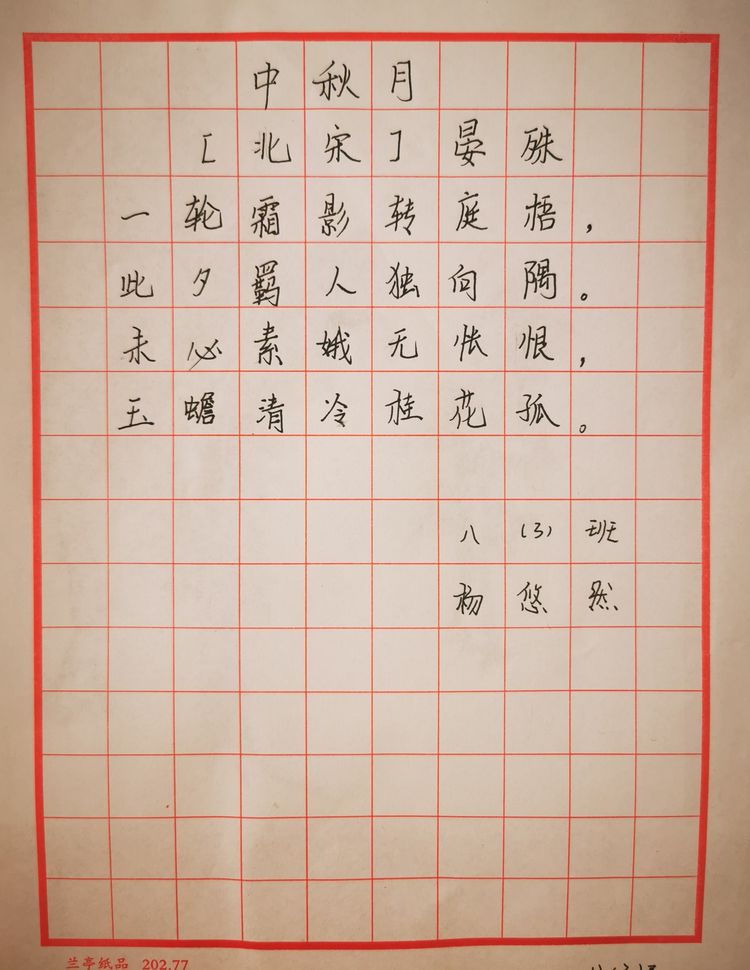 中秋月
[北宋]晏殊
一轮霜影转庭梧，
此夕羁人独向隅。
未必素娥无怅恨，
玉蟾清冷桂花孤。
八（3）班
杨悠然
兰亭纸品 202.77